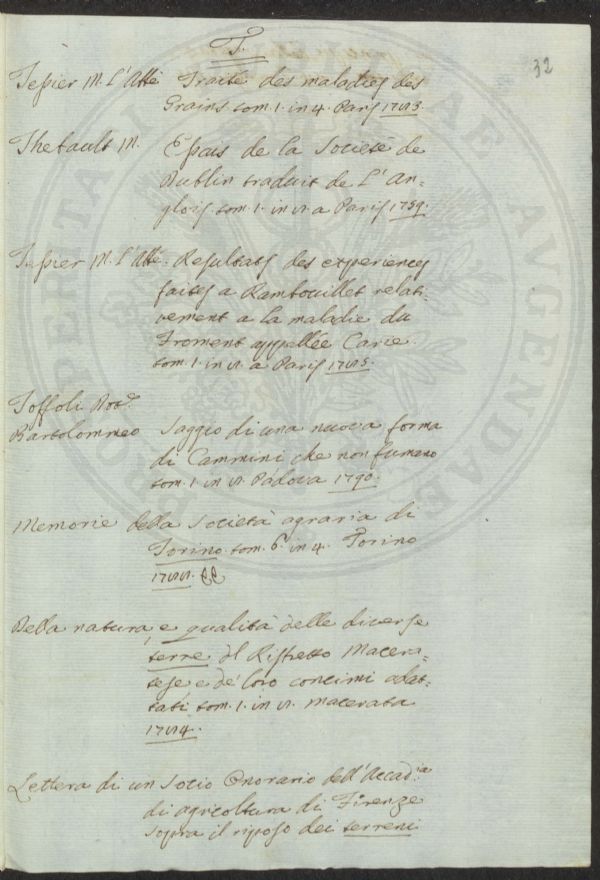 T.
32
Tessier M. l'Abbé Traité des maladies des
Grains tom. 1. in 4. Paris 1783.
Thebault M. Essais de la Societé de
Dublin traduit de L'An-
glois. tom. 1. in 8. a Paris 1759.
Tessier M. l'Abbé. Resultats des experiences
faites a Rambouillet relati-
vement a la maladie du
Froment appellée Carie.
tom. 1. in 8. a Paris 1785.
Toffoli Dot.r
Bartolommeo Saggio di una nuova forma
di Cammini che non fumano
tom. 1 in 8. Padova 1790.
Memorie della Società agraria di
Torino tom. 6. in 4. Torino
1788. &&
Della natura, e qualità delle diverse
terre del Ristretto Macera-
tese e de' loro concimi adat-
tati tom. 1. in 8. Macerata
1784.
Lettera di un Socio Onorario dell'Accad.ia
di agricoltura di Firenze
sopra il riposo dei terreni
VRO PERTATI AVGENDAE